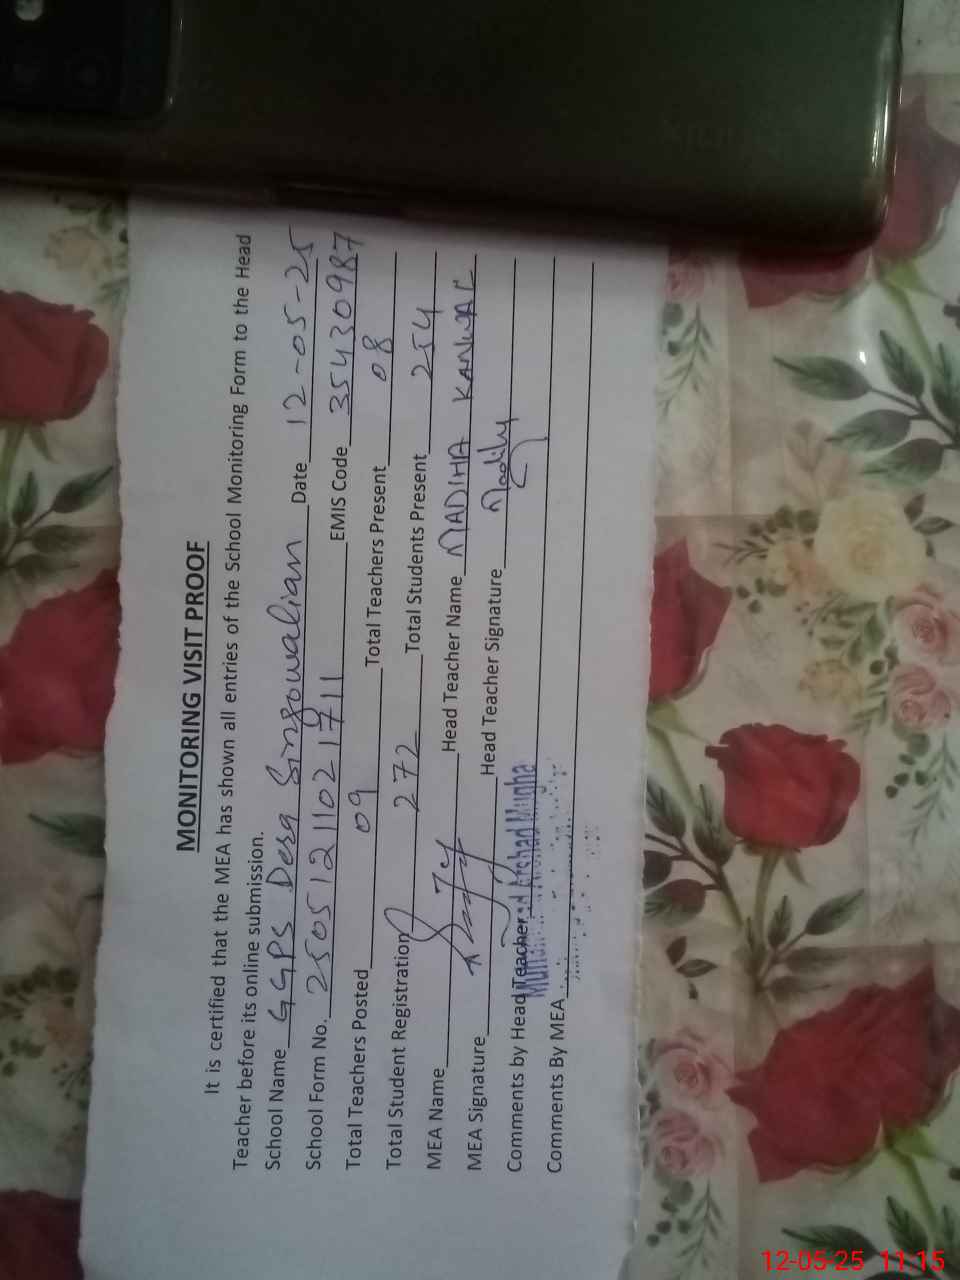 MONITORING VISIT PROOF
It is certified that the MEA has shown all entries of the School Monitoring Form to the Head
Teacher before its online submission.
School Name GGPS Dera Singowalian Date 12-05-25
School Form No. 2505121102171 1 EMIS Code 35430987
Total Teachers Posted 09 Total Teachers Present 08
Total Student Registration 272 Total Students Present 254
MEA Name Head Teacher Name MADIHA KANWAL
MEA Signature Head Teacher Signature
Comments by Head Teacher Muhammad Arshad Mugha
Comments By MEA
12-05-25 11:15